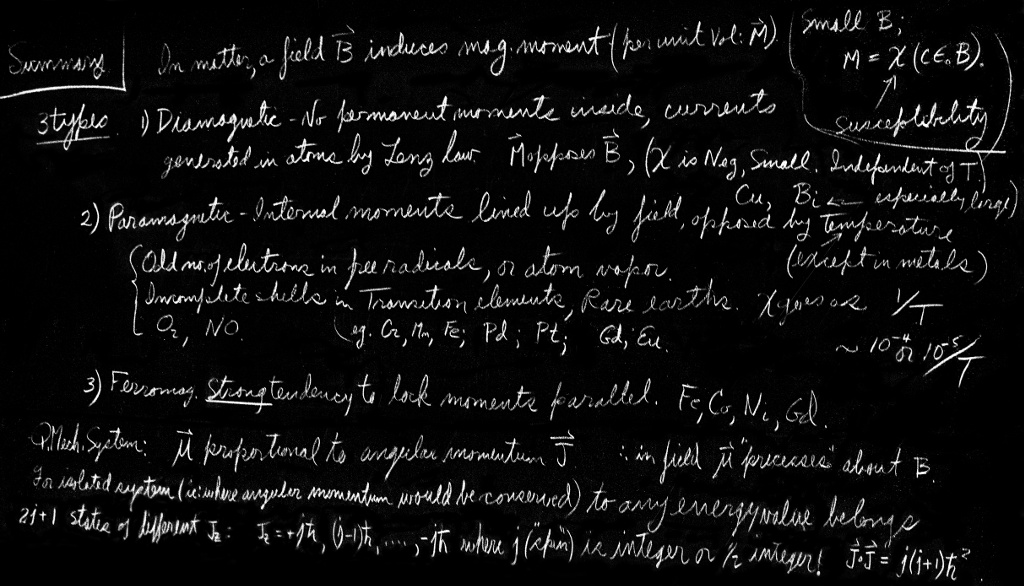 Summary
In matter, a field B⃗ induces mag. moment (per unit vol: M⃗)
Small B;
M = χ(cε₀B).
susceptibility
3 types
1) Diamagnetic - No permanent moments inside, currents
generated in atoms by Lenz law. M⃗ opposes B⃗, (χ is Neg, Small. Independent of T)
Cu, Bi ← especially large)
2) Paramagnetic - Internal moments lined up by field, opposed by temperature
(except in metals)
Odd no. of electrons in free radicals, or atom vapor.
Incomplete shells in Transition elements, Rare earths. χ goes as 1/T
O₂, NO. eg. Cr, Mn, Fe; Pd; Pt; Gd, Eu.
~ 10⁻⁴ or 10⁻⁵/T
3) Ferromag. Strong tendency to lock moments parallel. Fe, Co, Ni, Gd.
Q. Mech. System: μ⃗ proportional to angular momentum J⃗ ∴ in field μ⃗ "precesses" about B.
For isolated system (ie: where angular momentum would be conserved) to any energy value belongs
2j+1 states of different J_z: J_z = +jħ, (j-1)ħ, ...., -jħ where j ("spin") is integer or 1/2 integer! J⃗·J⃗ = j(j+1)ħ²